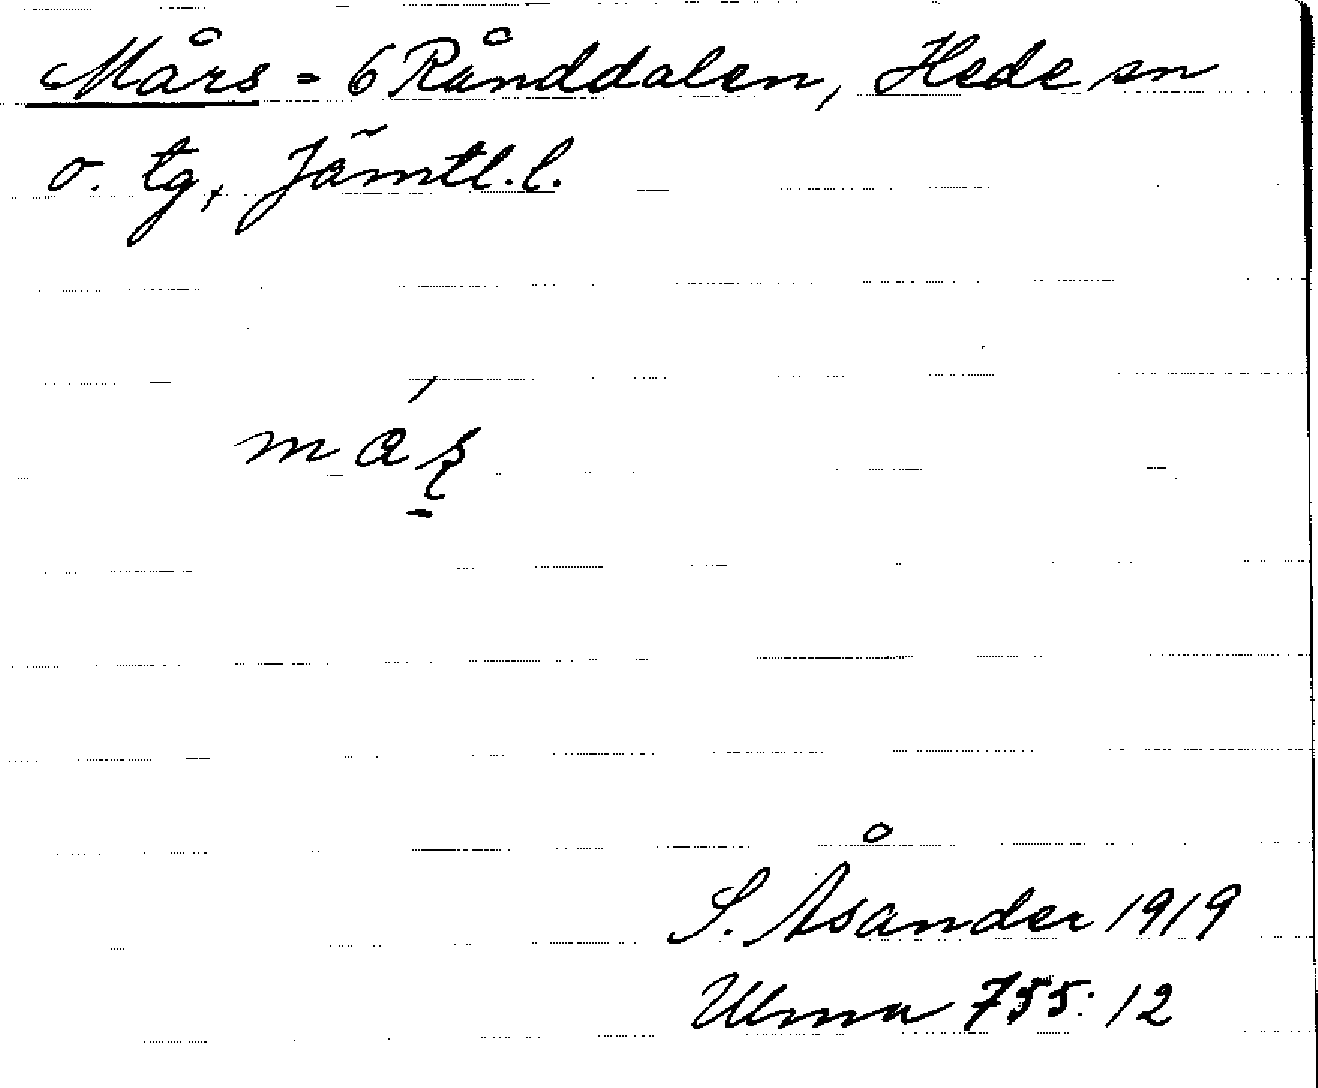 Mårs = 6 Rånddalen, Hede sn
o. tg, Jämtl.l.
S. Åsander 1919
Ulma 755:12